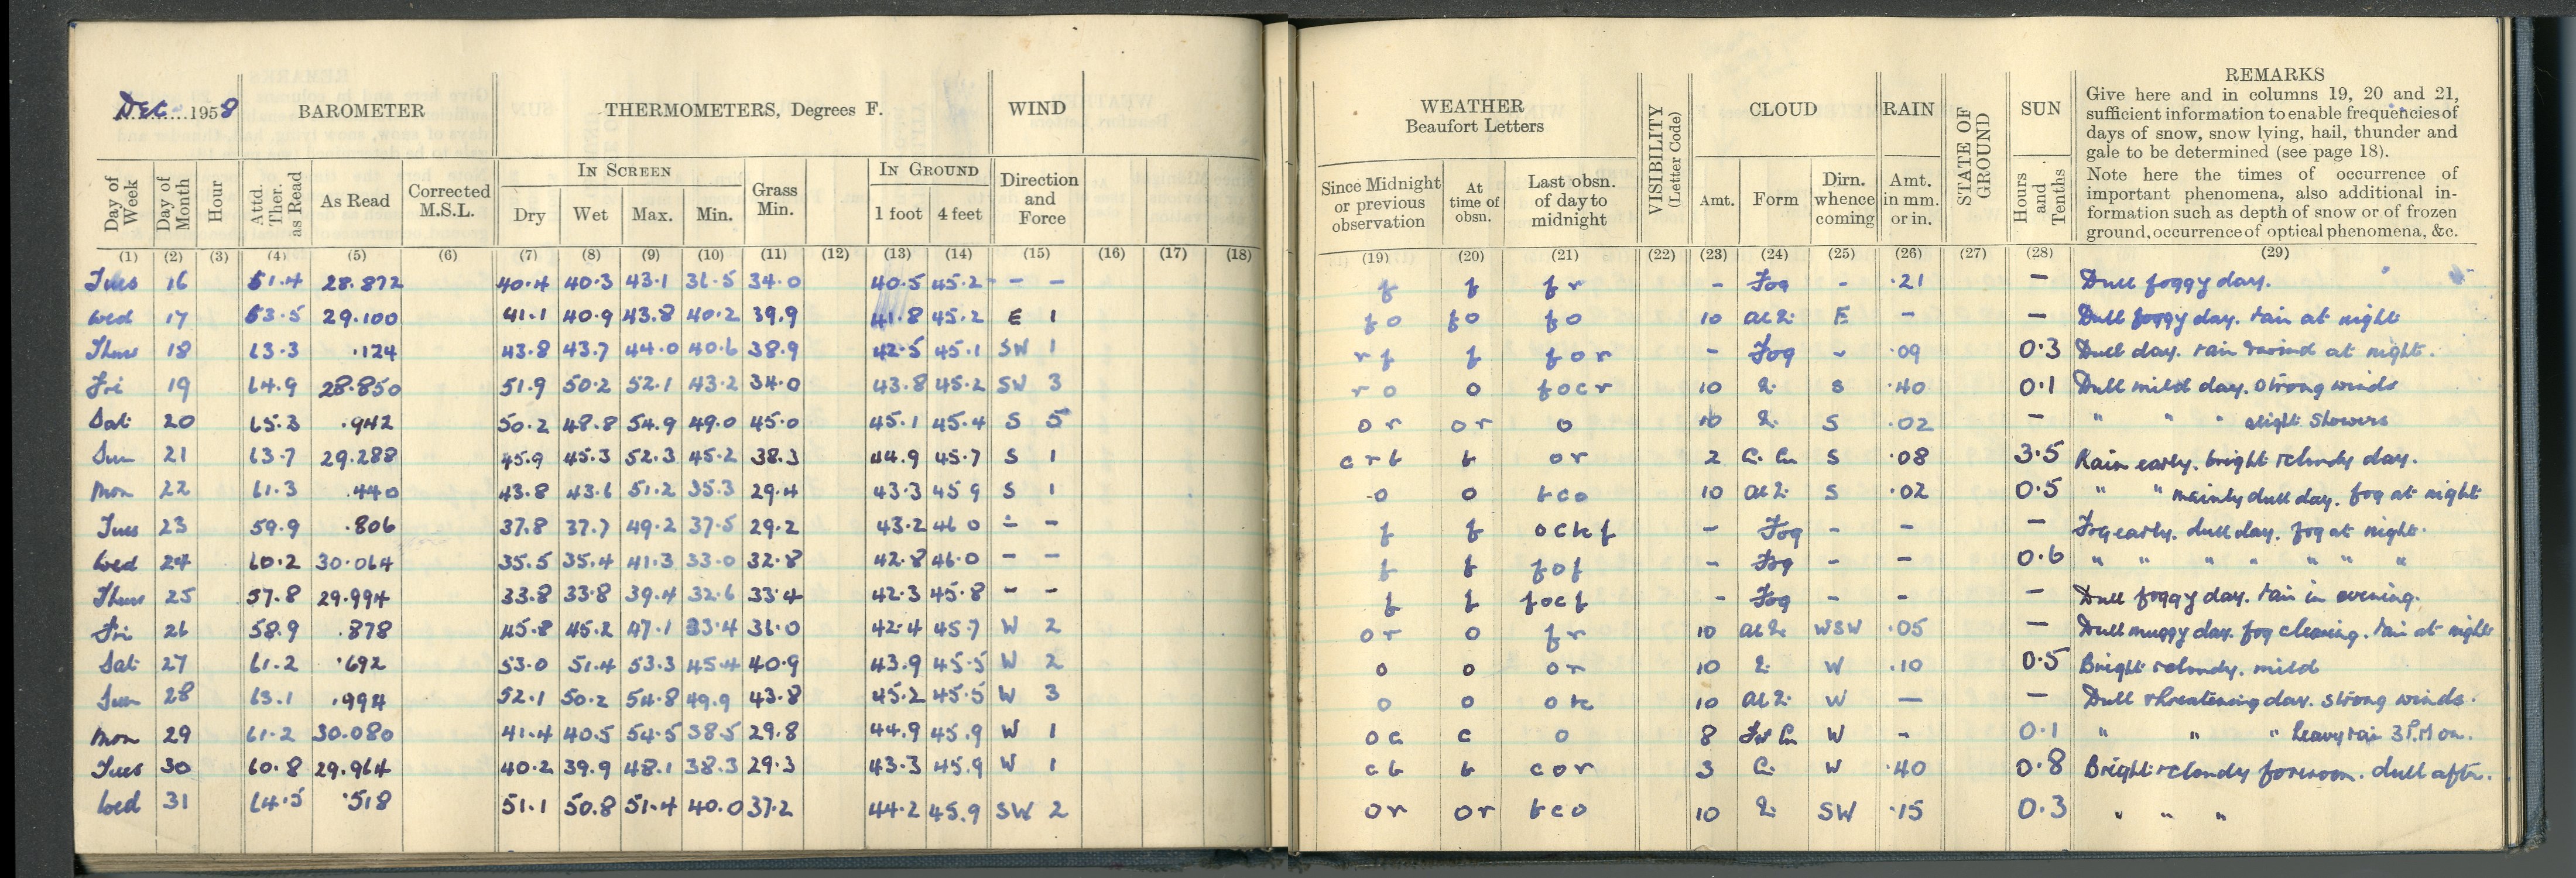 Dec. 1958 BAROMETER THERMOMETERS, Degrees F. WIND
IN SCREEN IN GROUND
Day of Week Day of Month Hour Attd. Ther. as Read As Read Corrected M.S.L. Dry Wet Max. Min. Grass Min. 1 foot 4 feet Direction and Force
(1) (2) (3) (4) (5) (6) (7) (8) (9) (10) (11) (12) (13) (14) (15) (16) (17) (18)
Tues 16 51.4 28.872 40.4 40.3 43.1 36.5 34.0 40.5 45.2 - -
Wed 17 53.5 29.100 41.1 40.9 43.8 40.2 39.9 41.8 45.2 E 1
Thurs 18 63.3 .124 43.8 43.7 44.0 40.6 38.9 42.5 45.1 SW 1
Fri 19 64.9 28.850 51.9 50.2 52.1 43.2 34.0 43.8 45.2 SW 3
Sat 20 65.3 .942 50.2 48.8 54.9 49.0 45.0 45.1 45.4 S 5
Sun 21 63.7 29.288 45.9 45.3 52.3 45.2 38.3 44.9 45.7 S 1
Mon 22 61.3 .440 43.8 43.6 51.2 35.3 29.4 43.3 45 9 S 1
Tues 23 59.9 .806 37.8 37.7 49.2 37.5 29.2 43.2 46 0 - -
Wed 24 60.2 30.064 35.5 35.4 41.3 33.0 32.8 42.8 46.0 - -
Thurs 25 57.8 29.994 33.8 33.8 39.4 32.6 33.4 42.3 45.8 - -
Fri 26 58.9 .878 45.8 45.2 47.1 33.4 31.0 42.4 45.7 W 2
Sat 27 61.2 .692 53.0 51.4 53.3 45.4 40.9 43.9 45.5 W 2
Sun 28 63.1 .994 52.1 50.2 54.8 49.9 43.8 45.2 45.5 W 3
Mon 29 61.2 30.080 41.4 40.5 54.5 38.5 29.8 44.9 45.9 W 1
Tues 30 60.8 29.964 40.2 39.9 48.1 38.3 29.3 43.3 45.9 W 1
Wed 31 64.5 .518 51.1 50.8 51.4 40.0 37.2 44.2 45.9 SW 2
WEATHER
Beaufort Letters
VISIBILITY (Letter Code) CLOUD RAIN STATE OF GROUND SUN
REMARKS
Give here and in columns 19, 20 and 21,
sufficient information to enable frequencies of
days of snow, snow lying, hail, thunder and
gale to be determined (see page 18).
Note here the times of occurrence of
important phenomena, also additional in-
formation such as depth of snow or of frozen
ground, occurrence of optical phenomena, &c.
Since Midnight or previous observation At time of obsn. Last obsn. of day to midnight Amt. Form Dirn. whence coming Amt. in mm. or in. Hours and Tenths
(19) (20) (21) (22) (23) (24) (25) (26) (27) (28) (29)
f f f r - Fog - .21 - Dull foggy day.
f o f o f o 10 E - - Dull foggy day. rain at night
r f f f o r - Fog - .09 0.3 Dull day. rain + wind at night.
r o o f o c r 10 S .40 0.1 Dull mild day. Strong winds
o r o r o 10 S .02 - " " " slight showers
c r b b o r 2 S .08 3.5 Rain early. bright + cloudy day.
o o b c o 10 S .02 0.5 " " mainly dull day. fog at night
f f - Fog - - - Fog early. dull day. fog at night.
f f f o f - Fog - - 0.6 " " " " " " "
f f f o c f - Fog - - - Dull foggy day. rain in evening.
o r o f r 10 WSW .05 - Dull muggy day. fog clearing. rain at night
o o o r 10 W .10 0.5 Bright + cloudy. mild
o o 10 W - - Dull threatening day. strong winds.
o c c o 8 W - 0.1 " " " heavy rain 3 P.M on.
c b b c o r 3 W .40 0.8 Bright + cloudy forenoon. dull aftn.
o r o r b c o 10 SW .15 0.3 " " "